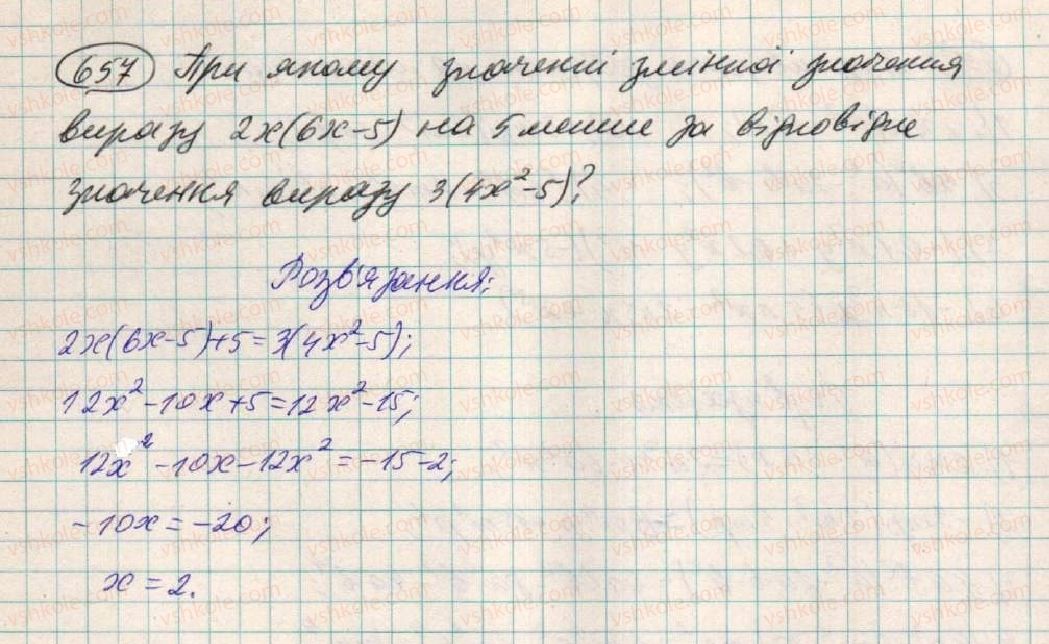 657 При якому значенні змінної значення
виразу 2x(6x-5) на 5 менше за відповідне
значення виразу 3(4x²-5)?
Розв'язання:
2x(6x-5)+5=3(4x²-5);
12x²-10x+5=12x²-15;
12x²-10x-12x²=-15-2;
-10x=-20;
x=2.